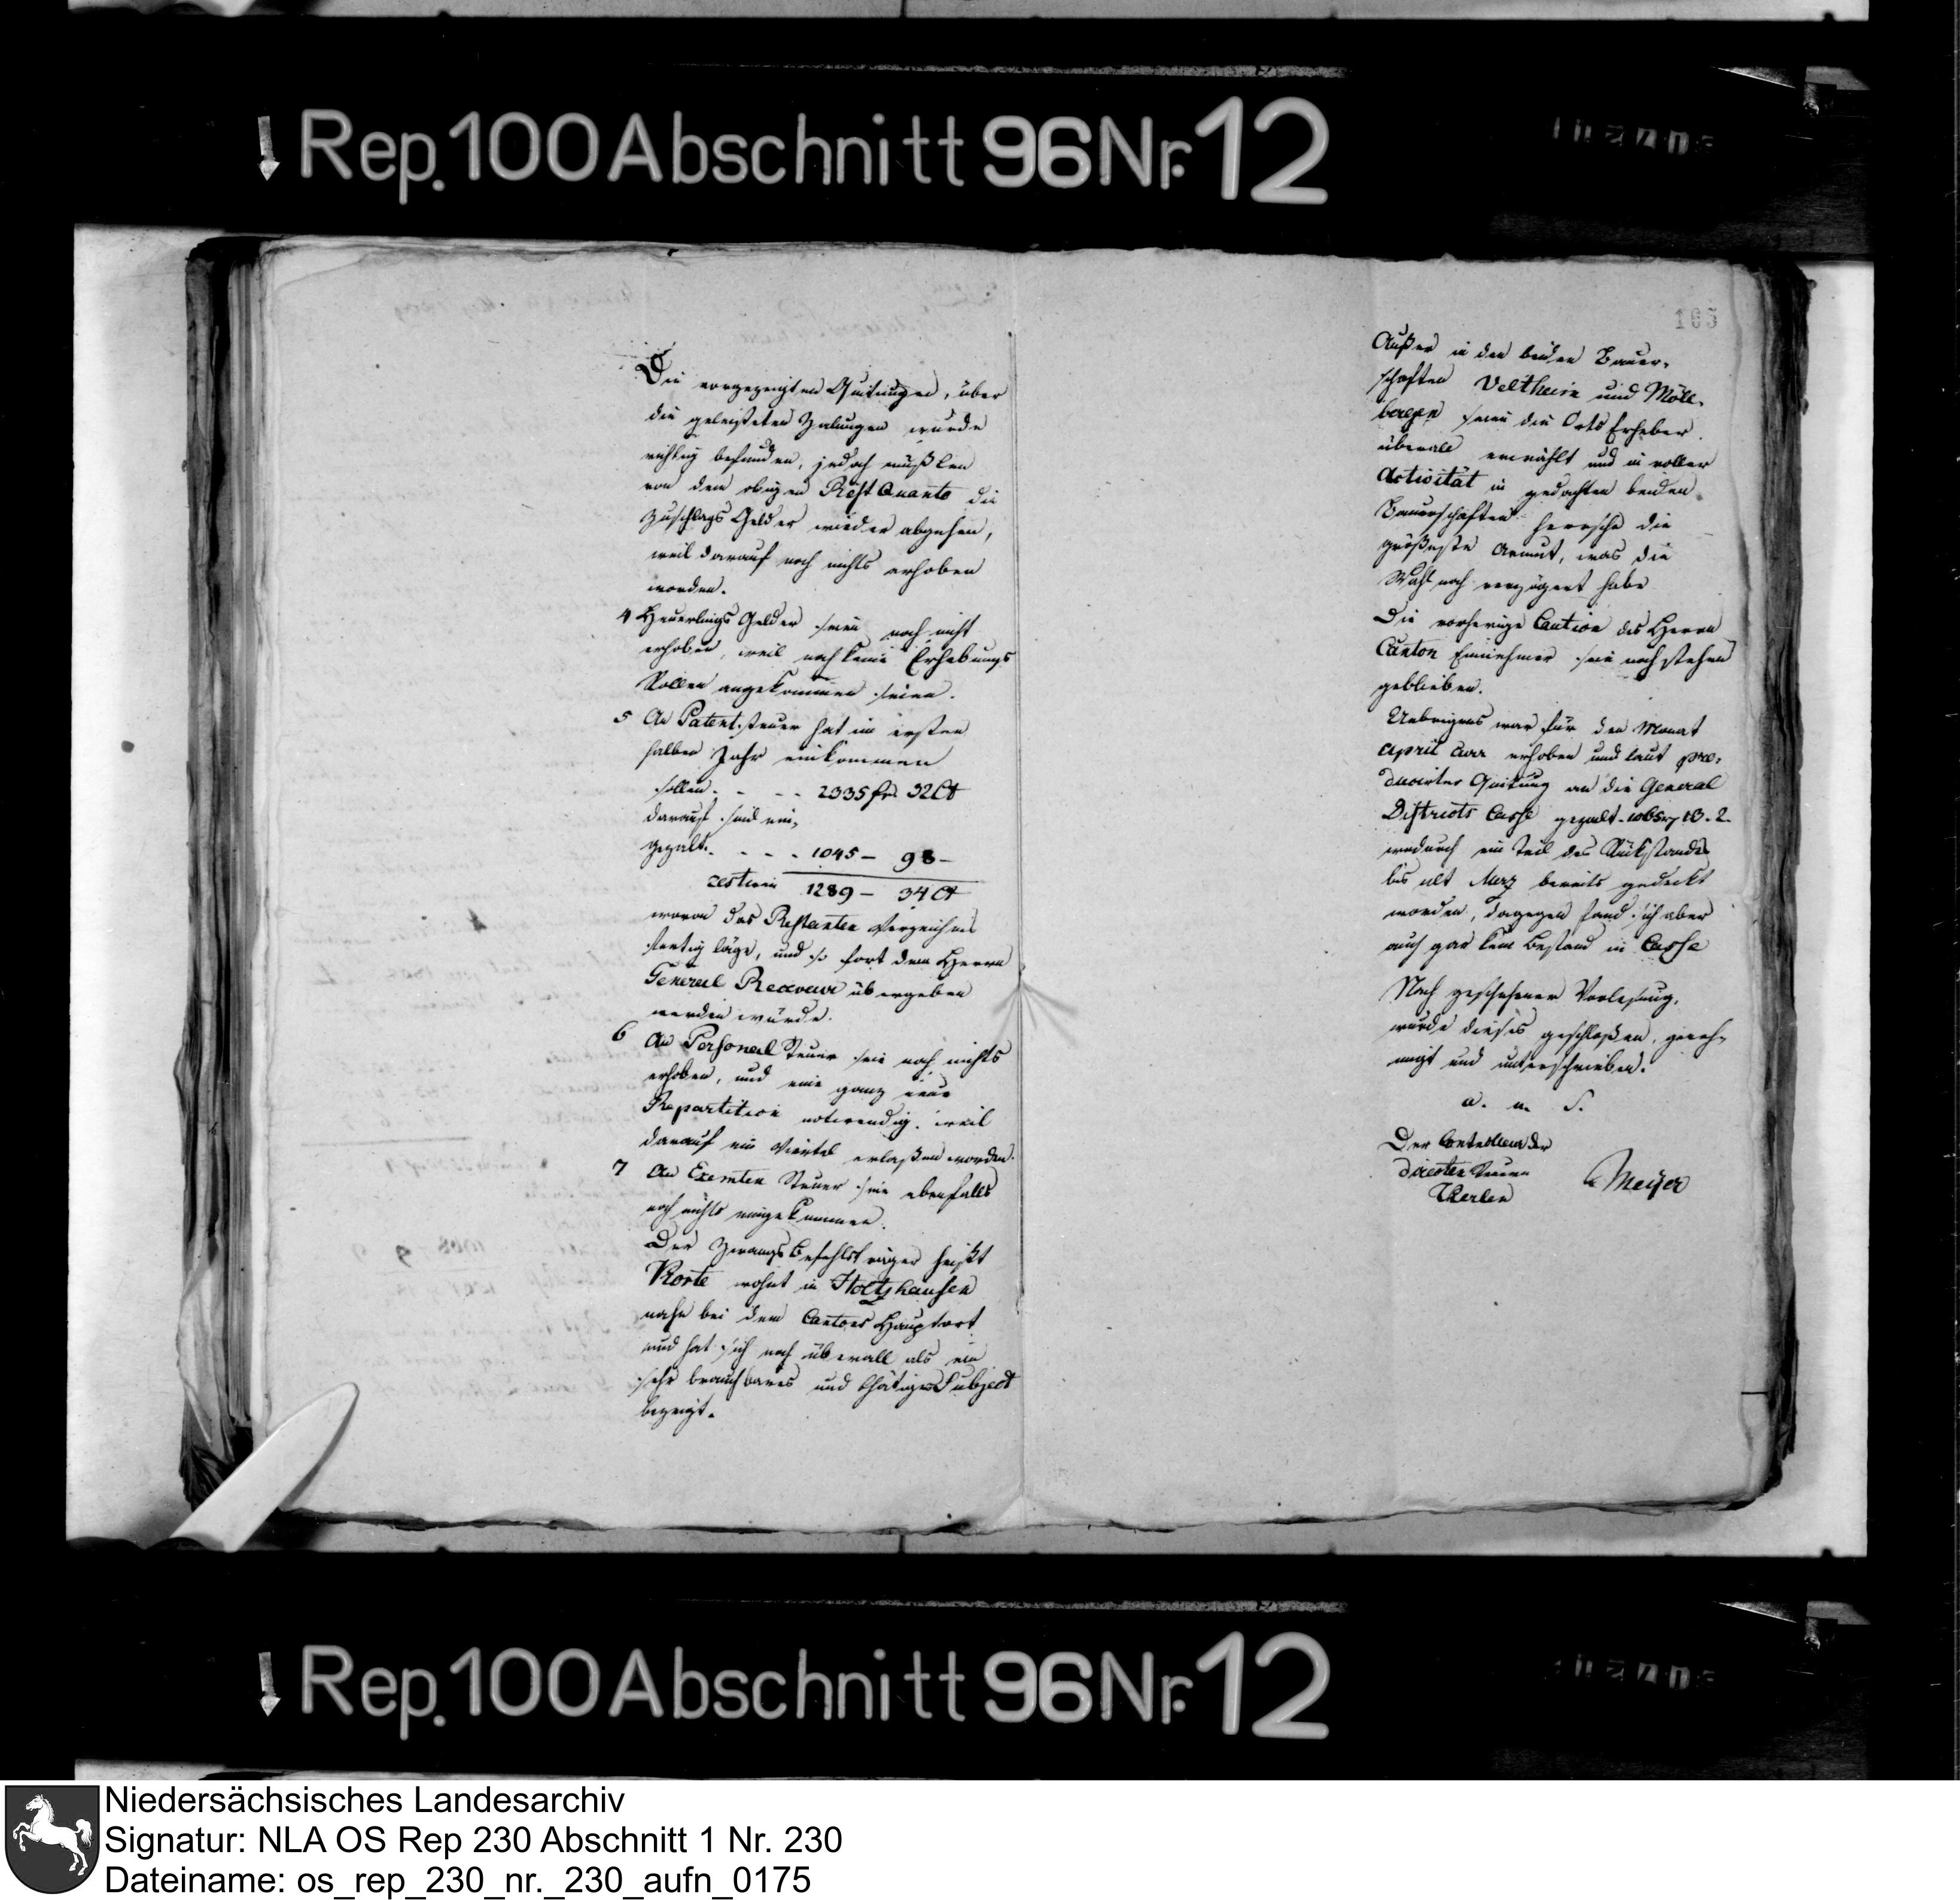 Rep. 100 Abschnitt 96 Nr. 12
Die vorgezeigten Quitungen, über
die geleisteten Zalungen wurde
richtig befunden, jedoch müßten
von dem obigen Rest Quanto die
Zuschlags Gelder wieder abgehen,
weil darauf noch nichts erhoben
worden.
4 Heuerlings Gelder seien noch nicht
erhoben, weil noch keine Erhebungs
Rollen angekommen seien.
5 An Patent steuer hat im ersten
halben Jahr einkommen
sollen - - - 2335 frs 32 Ct
darauf sind ein,
gezalt - - - 1045 - 98 -
restiren 1289 - 34 Ct
wovon das Restanten Verzeichnis
fertig läge, und so fort dem Herrn
General Receveur übergeben
werden würde.
6 An Personal Steuer sei noch nichts
erhoben, und eine ganz neue
Repartition notwendig, weil
darauf ein Viertel erlaßen worden.
7 An Exemten Steuer sei ebenfalls
noch nichts eingekommen.
Der Zwangsbefehlsträger heißt
Korte wohnt in Holtzhausen
nahe bei dem Cantons Hauptort
und hat sich noch überall als ein
sehr brauchbares und thätiges Subject
bezeigt.
105
Außer in den beiden Bauer-
schaften Veltheim und Möll-
bergen seien die Orts Erheber
überall erwählt und in voller
Activität in gedachten beiden
Bauerschaften herrsche die
größeste Armut, was die
Wahl noch verzögert habe
Die vorherige Caution des Herrn
Canton Einnehmer sei noch stehen
geblieben.
Uebrigens war für den Monat
April curr erhoben und laut pro-
ducirter Quitung an die General
Districts Casse gezalt - 13 - 2.
wodurch ein Teil des Rükstandes
bis ult Merz bereits gedeckt
worden, dagegen fand sich aber
auch gar kein Bestand in Casse
Nach geschehener Vorlesung,
wurde dieses geschloßen, geneh-
migt und unterschrieben.
a. u. s.
Der Controlleur der
directen Steuern
Meyer
Rep. 100 Abschnitt 96 Nr. 12
Niedersächsisches Landesarchiv
Signatur: NLA OS Rep 230 Abschnitt 1 Nr. 230
Dateiname: os_rep_230_nr._230_aufn_0175